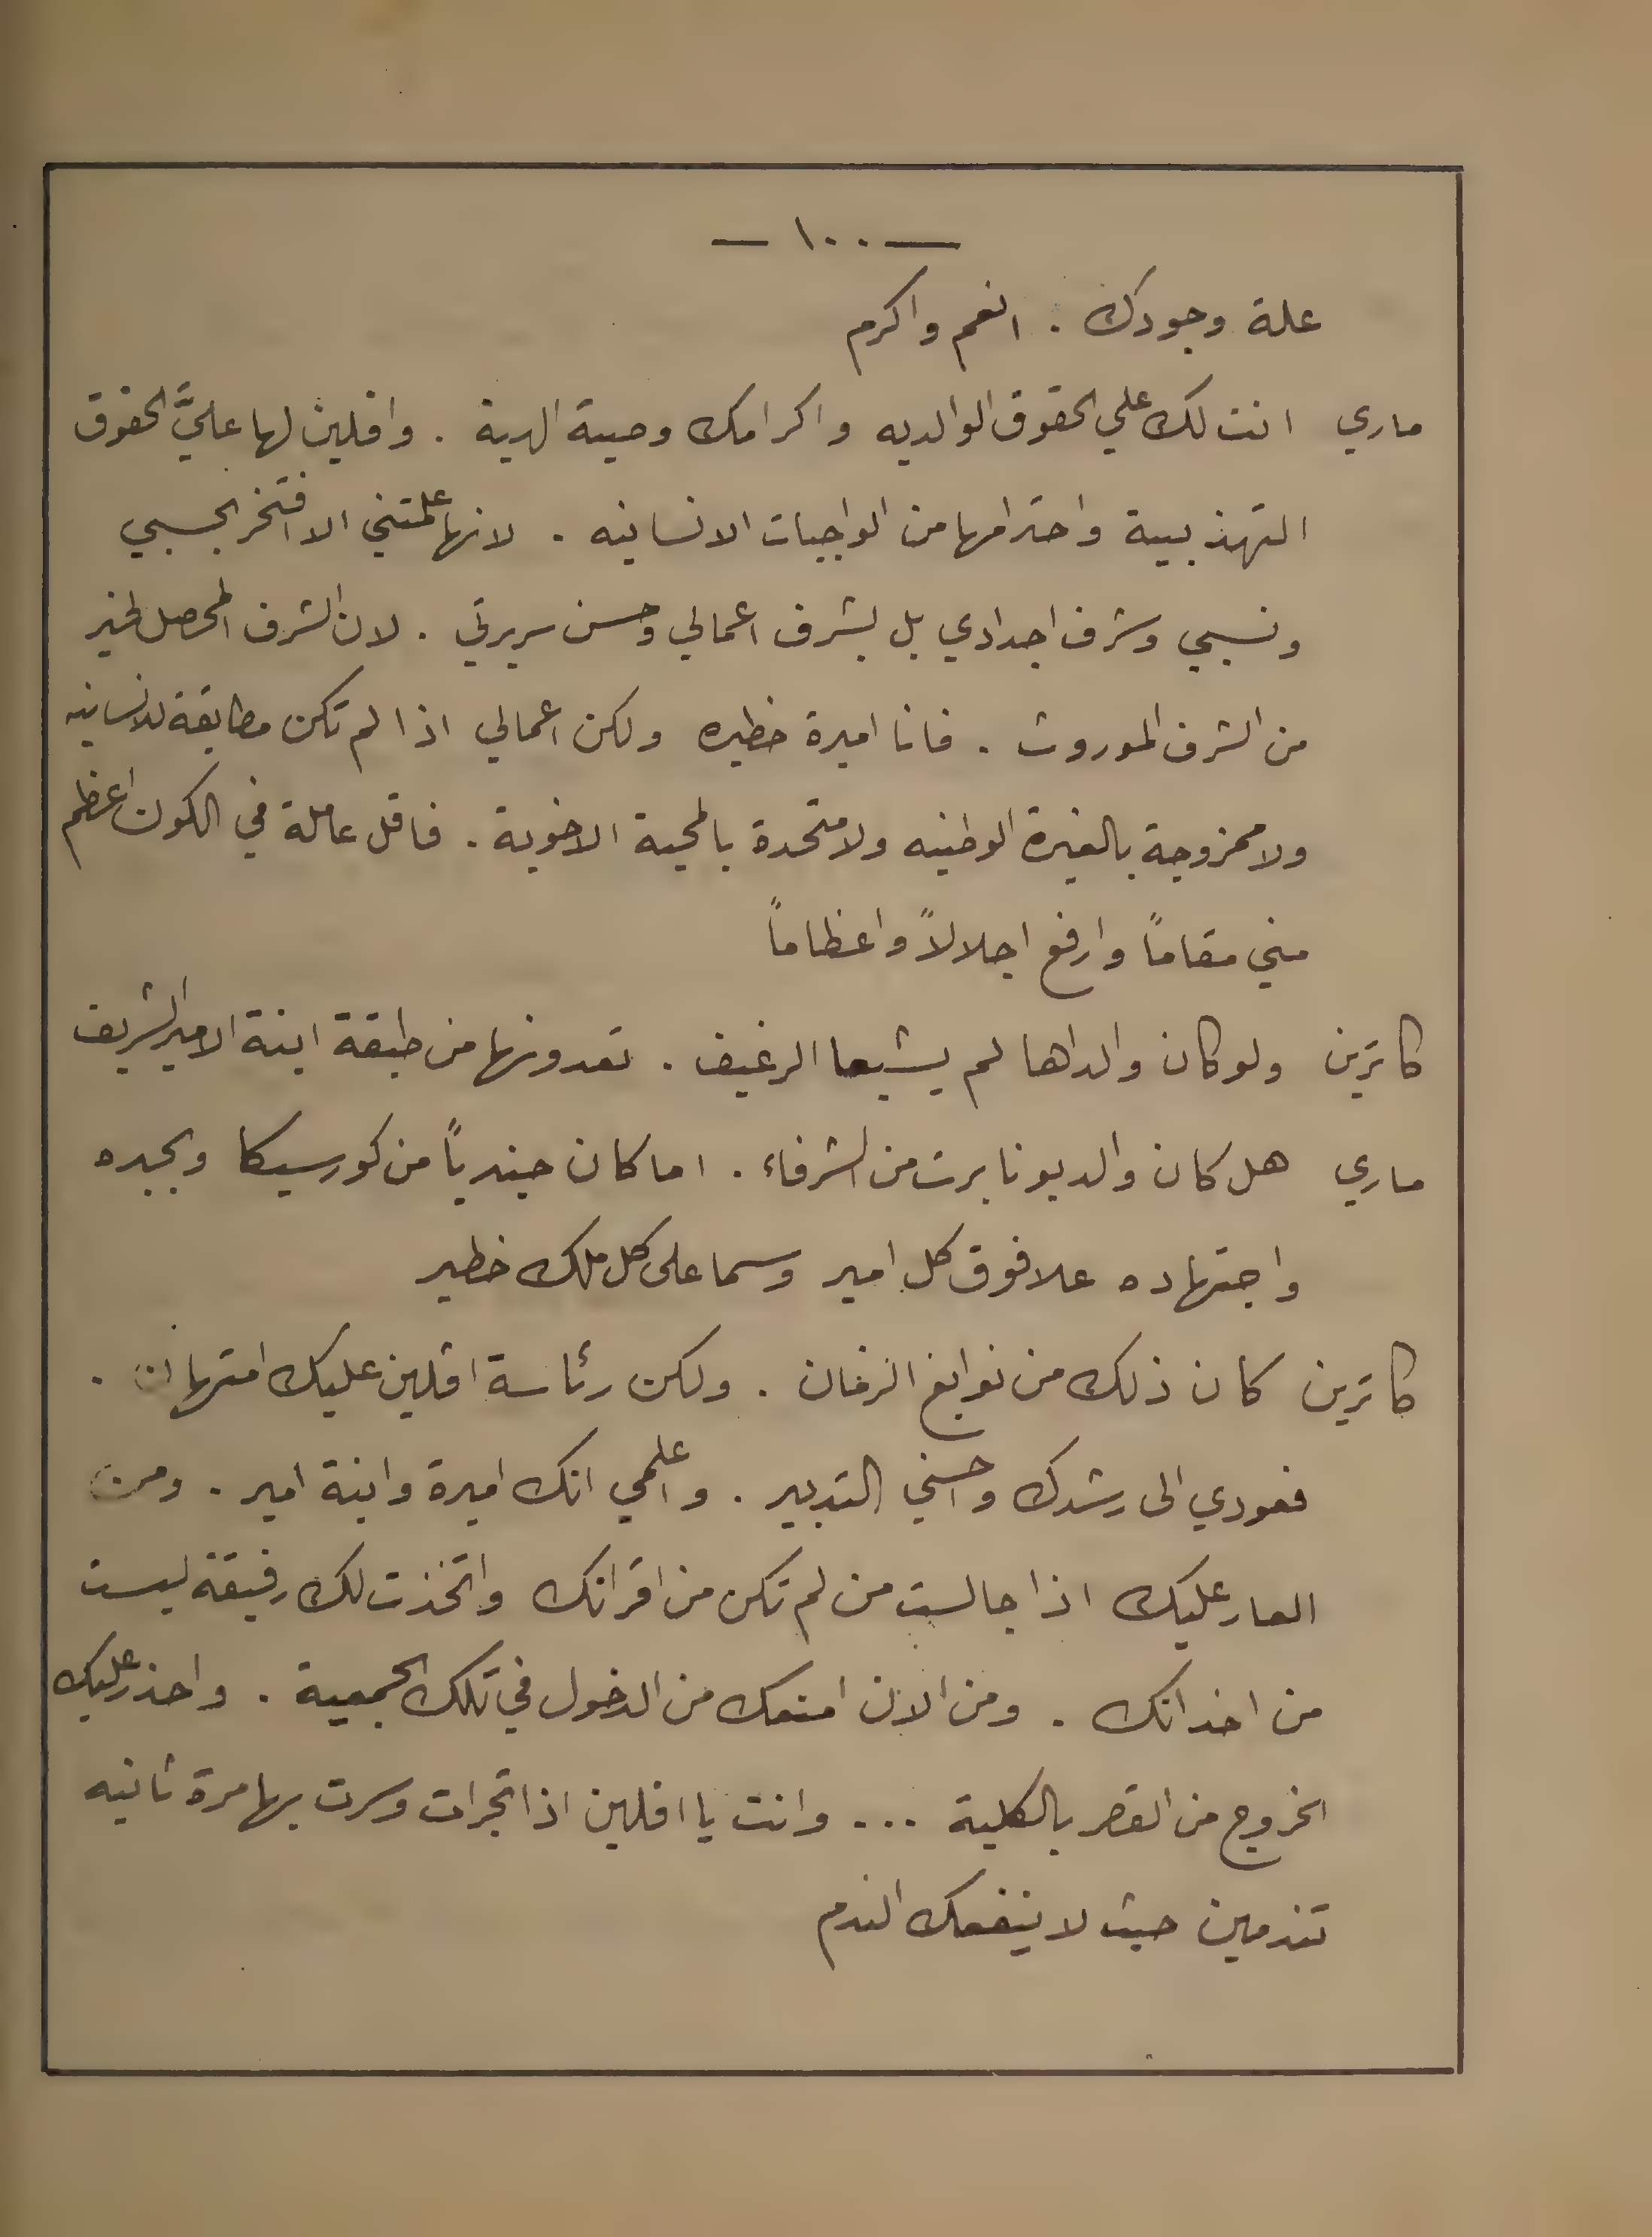 — ١٠٠ —
علة وجودك . انعم واكرم
ماري انت لك علي الحقوق الوالديه واكرامك وصية الهية . وافلين لها عليَّ الحقوق
التهذيبية واحترامها من الواجبات الانسانيه . لانها علمتني الا افتخر بحسبي
ونسبي وشرف اجدادي بل بشرف اعمالي وحسن سريرتي . لان الشرف المحصل لخير
من الشرف الموروث . فانا اميرة خطيره ولكن اعمالي اذا لم تكن مطابقة للانسانيه
ولا ممزوجة بالغيرة الوطنيه ولا متحدة بالمحبة الاخوية . فاقل عاملة في الكون اعظم
مني مقاماً وارفع اجلالاً واعظاماً
كاترين ولو كان والداها لم يشبعا الرغيف . تعدونها من طبقة ابنة الامير الشريف
ماري هل كان والد بونابرت من الشرفاء . اما كان جندياً من كورسيكا وبجده
واجتهاده علا فوق كل امير وسما على كل ملك خطير
كاترين كان ذلك من نوابغ الزمان . ولكن رئاسة افلين عليك امتهان .
فعودي الى رشدك واحسني التدبير . واعلمي انك اميرة وابنة امير . ومن
العار عليك اذا جالست من لم تكن من اقرانك واتخذت لك رفيقة ليست
من اخدانك . ومن الان امنعك من الدخول في تلك الجمعية . واحذر عليك
الخروج من القصر بالكلية ... وانت يا افلين اذا تجرات وسرت بها مرة ثانيه
تندمين حيث لا ينفعك الندم